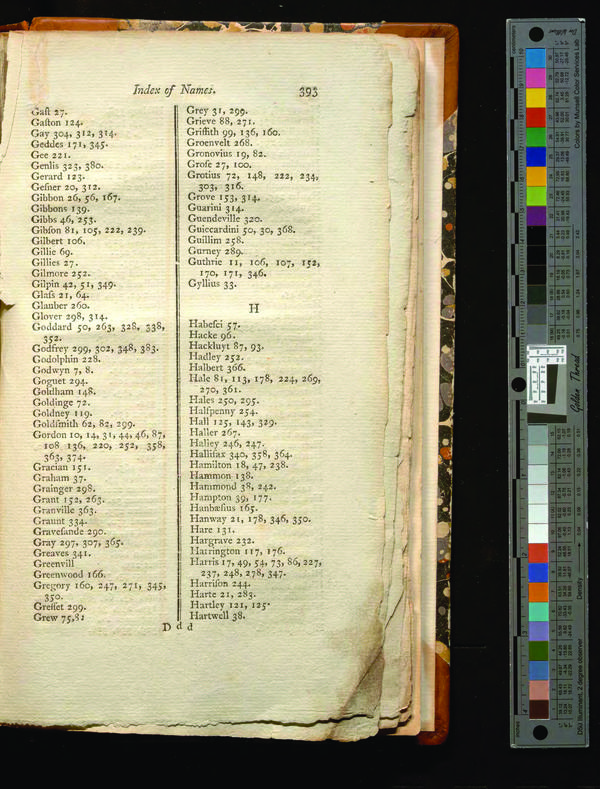 Index of Names. 393
Gaſt 27.
Gaſton 124.
Gay 304, 312, 314.
Geddes 171, 345.
Gee 221.
Genlis 323, 380.
Gerard 123.
Geſner 20, 312.
Gibbon 26, 56, 167.
Gibbons 139.
Gibbs 46, 253.
Gibſon 81, 105, 222, 239.
Gilbert 106.
Gillie 69.
Gillies 27.
Gilmore 252.
Gilpin 42, 51, 349.
Glaſs 21, 64.
Glauber 260.
Glover 298, 314.
Goddard 50, 263, 328, 338,
352.
Godfrey 299, 302, 348, 383.
Godolphin 228.
Godwyn 7, 8.
Goguet 294.
Goldham 148.
Goldinge 72.
Goldney 119.
Goldſmith 62, 82, 299.
Gordon 10, 14, 31, 44, 46, 87,
108, 136, 220, 252, 358,
363, 374.
Gracian 151.
Graham 37.
Grainger 298.
Grant 152, 263.
Granville 363.
Graunt 334.
Graveſande 290.
Gray 297, 307, 365.
Greaves 341.
Greenvill
Greenwood 166.
Gregory 160, 247, 271, 345,
350.
Greſſet 299.
Grew 75,82
Grey 31, 299.
Grieve 88, 271.
Griffith 99, 136, 160.
Groenvelt 268.
Gronovius 19, 82.
Groſe 27, 100.
Grotius 72, 148, 222, 234,
303, 316.
Grove 153, 314.
Guarini 314.
Guendeville 320.
Guiccardini 50, 30, 368.
Guillim 258.
Gurney 289.
Guthrie 11, 106, 107, 152,
170, 171, 346.
Gyllius 33.
H
Habeſci 57.
Hacke 96.
Hackluyt 87, 93.
Hadley 252.
Halbert 366.
Hale 81, 113, 178, 224, 269,
270, 361.
Hales 250, 295.
Halfpenny 254.
Hall 125, 143, 329.
Haller 267.
Halley 246, 247.
Hallifax 340, 358, 364.
Hamilton 18, 47, 238.
Hammon 138.
Hammond 38, 242.
Hampton 39, 177.
Hanbæſius 165.
Hanway 21, 178, 346, 350.
Hare 131.
Hargrave 232.
Harrington 117, 176.
Harris 17, 49, 54, 73, 86, 227,
237, 248, 278, 347.
Harriſon 244.
Harte 21, 283.
Hartley 121, 125.
Hartwell 38.
D d d
Colors by Munsell Color Services Lab
Golden Thread
Density
D50 Illuminant, 2 degree observer